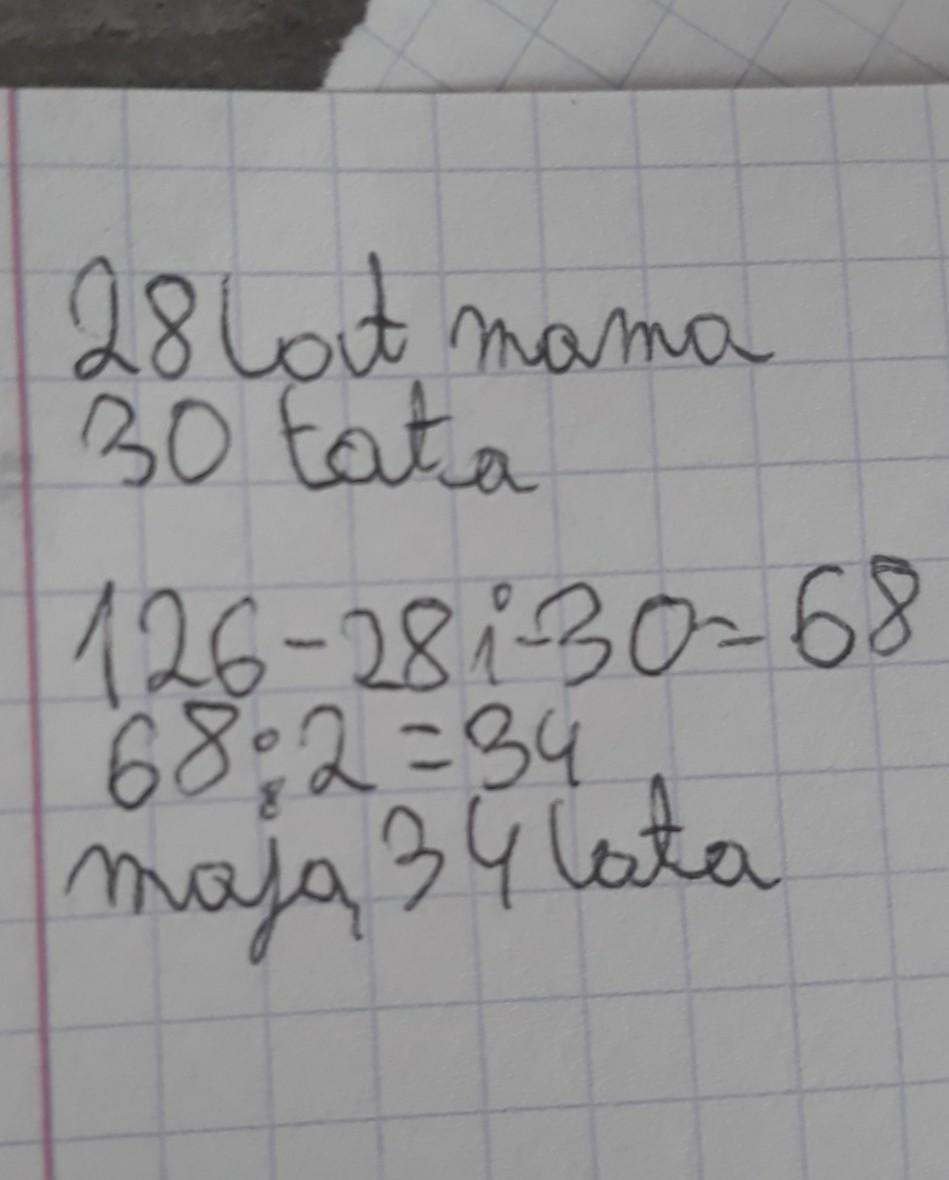 28 lat mama
30 tata
126-28 i -30=68
68:2=34
mają 34 lata